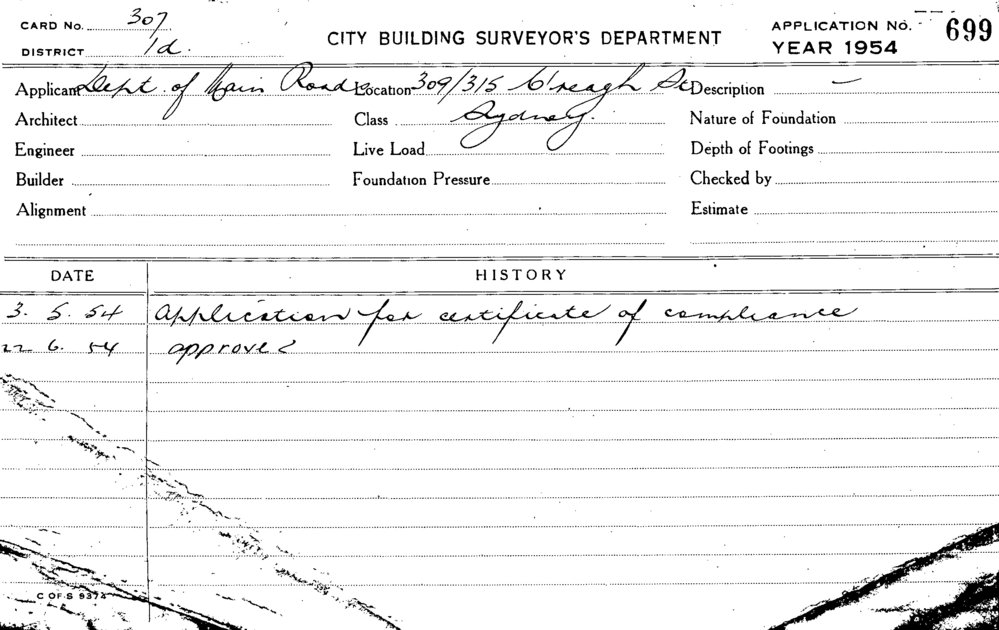 CARD No. 307
DISTRICT 1d.
CITY BUILDING SURVEYOR'S DEPARTMENT
APPLICATION No. 699
YEAR 1954
Applicant Dept. of Main Roads Location 309/315 C'reagh St Description —
Architect Class Sydney. Nature of Foundation
Engineer Live Load Depth of Footings
Builder Foundation Pressure Checked by
Alignment Estimate
DATE HISTORY
3. 5. 54 Application for certificate of compliance
22 6. 54 approved
C OF S 9374